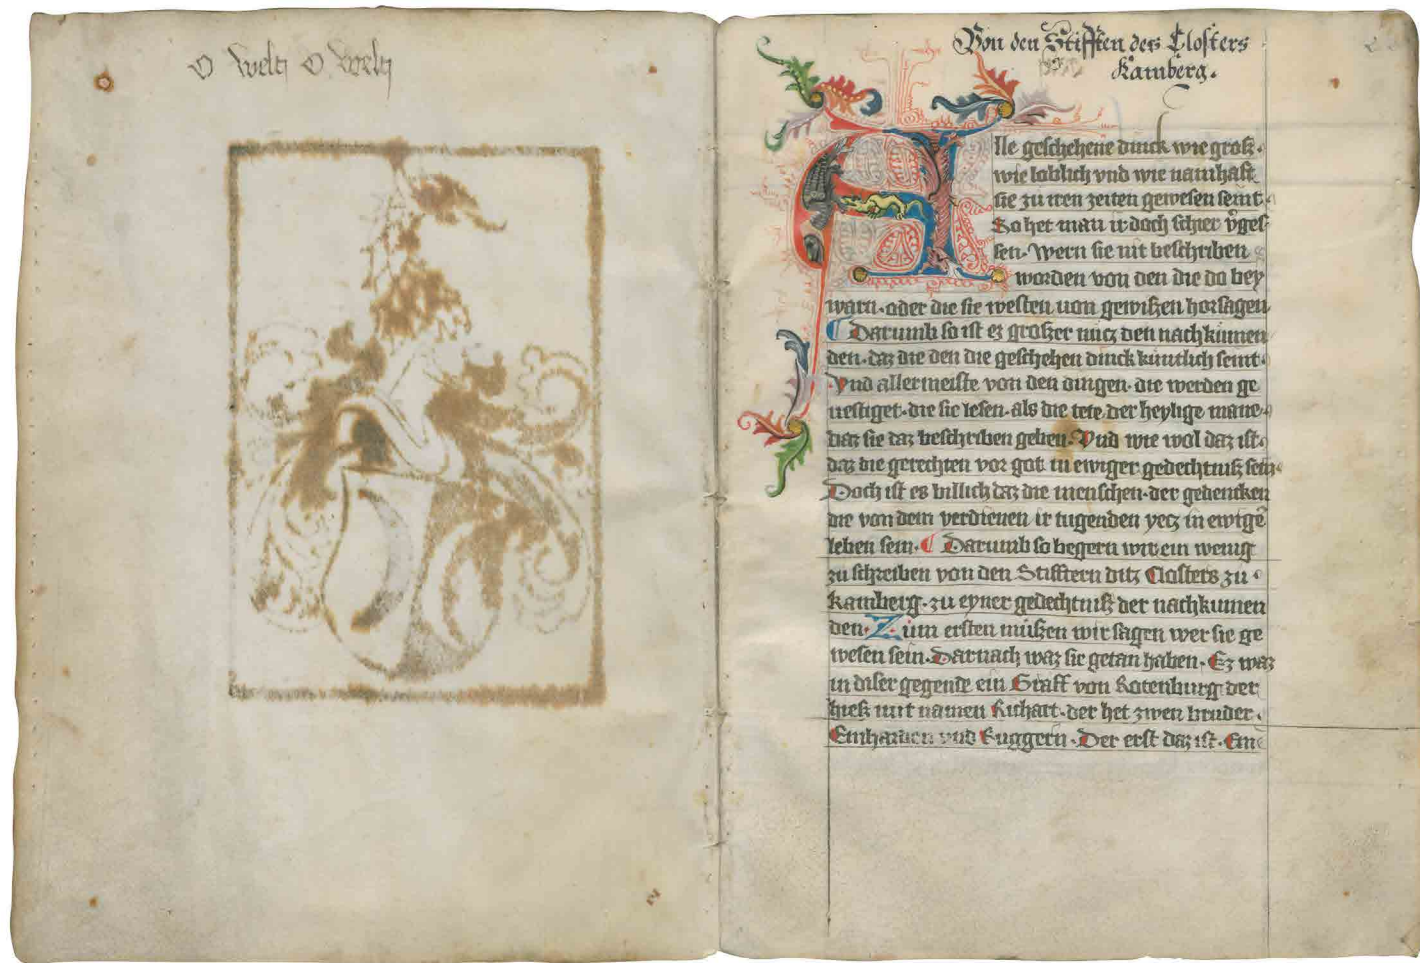 O welt O welt
Von den Stifften des Closters
Kamberg.
Alle geschehene dinck wie groß.
wie loblich vnd wie namhaft
sie zu iren zeiten gewesen seint.
So het man ir doch schier v̾ges-
sen. Wern sie nit beschriben
worden von den die do bey
warn. oder die sie westen uon gewißen horsagen
Darumb so ist ez großer nucz den nachkumen
den. daz die den die geschehen dinck kuntlich seint.
Vnd allermeiste von den dingen. die werden ge
uestiget. die sie lesen. als die tete der heylige mane
daz sie daz beschriben geben. Vnd wie wol daz ist.
daz die gerechten vor got in ewiger gedechtniß sein
Doch ist es billich daz die menschen. der gedencken
die von dem verdienen ir tugenden yecz in ewigē
leben sein. Darumb so begern wir ein wenig
zu schreiben von den Stifftern ditz Closters zu
Kamberg. zu eyner gedechtniß der nachkumen
den. Zum ersten müßen wir sagen wer sie ge
wesen sein. Darnach waz sie getan haben. Ez waz
in diser gegende ein Graff von Rotenburg der
hieß mit namen Richart. der het zwen bruder.
Einharden vnd Ruggern. Der erst daz ist. Ein